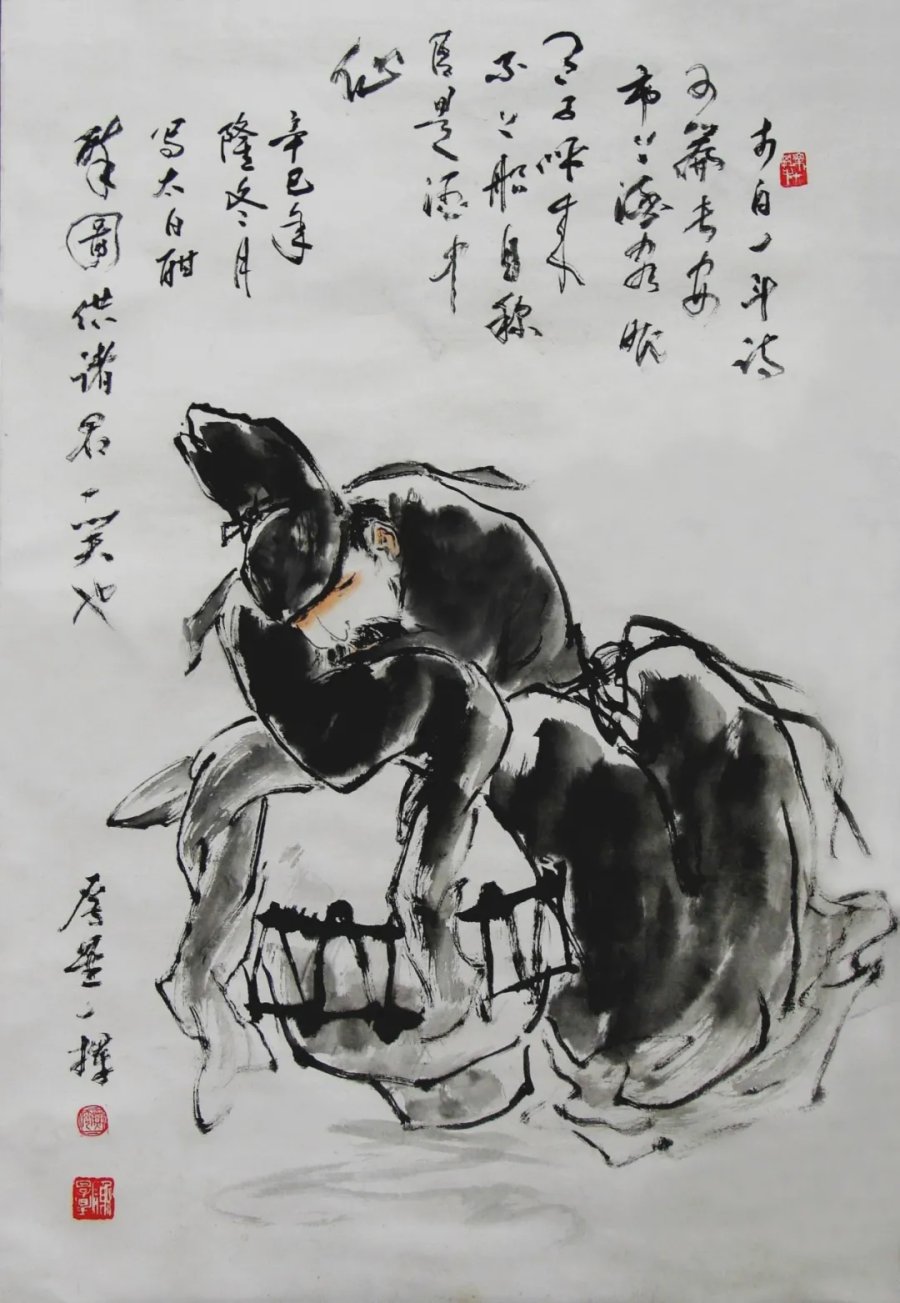 李白一斗诗
百篇长安
市上酒家眠
天子呼来
不上船自称
臣是酒中
仙
辛巳年
隆冬月
写太白酣
醉图供诸君一笑也
墨一挥